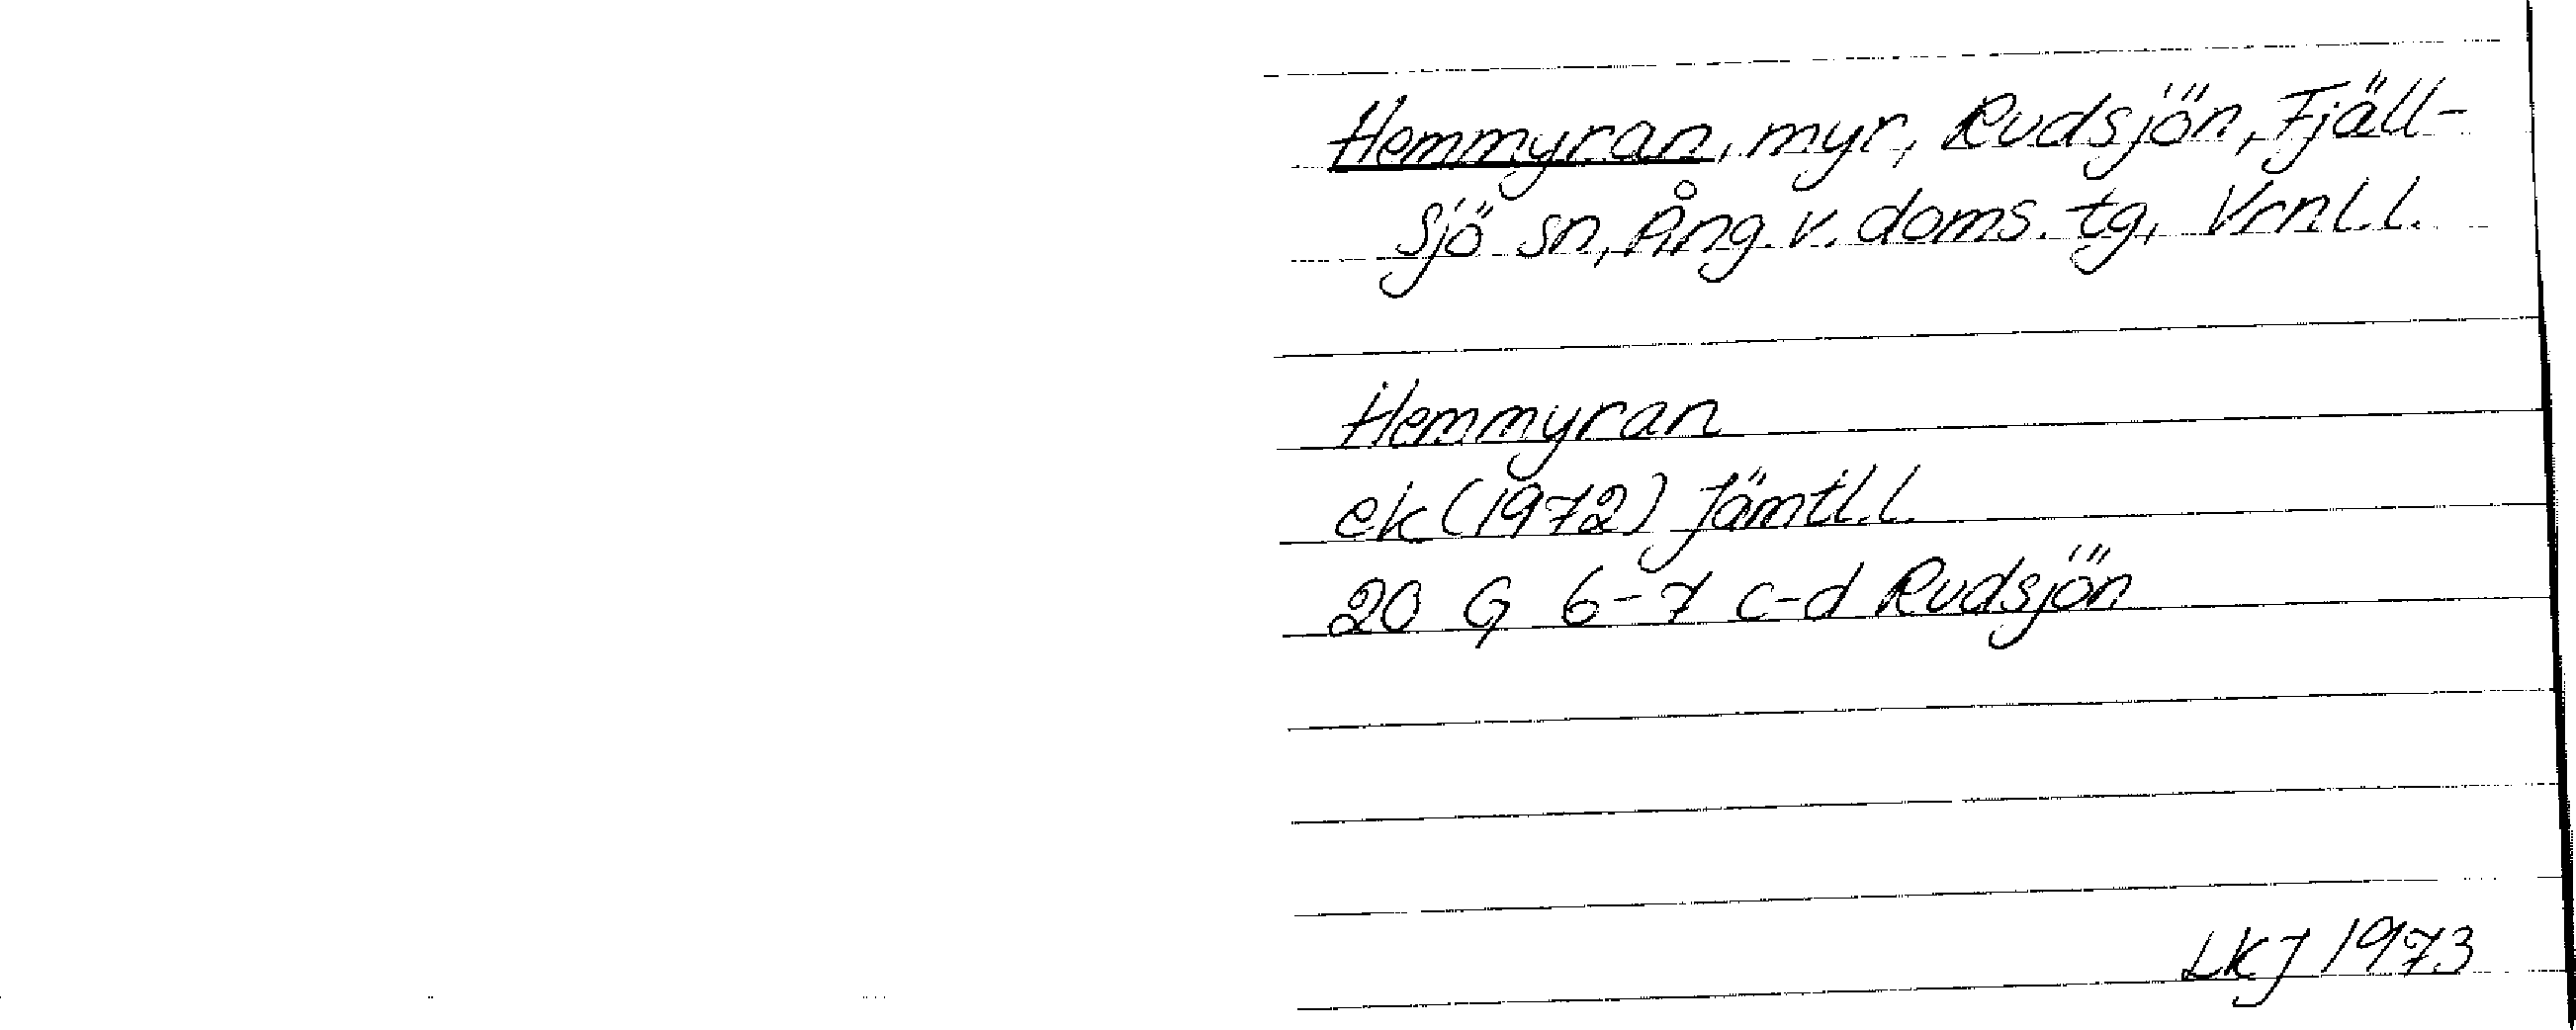 Hemmyran, myr, Rudsjön, Fjäll-
sjö sn, Ång. v. doms. tg, Vrnl.l.
Hemmyran
ek (1972) Jämtl.l.
20 G 6-7 c-d Rudsjön
LKJ 1973